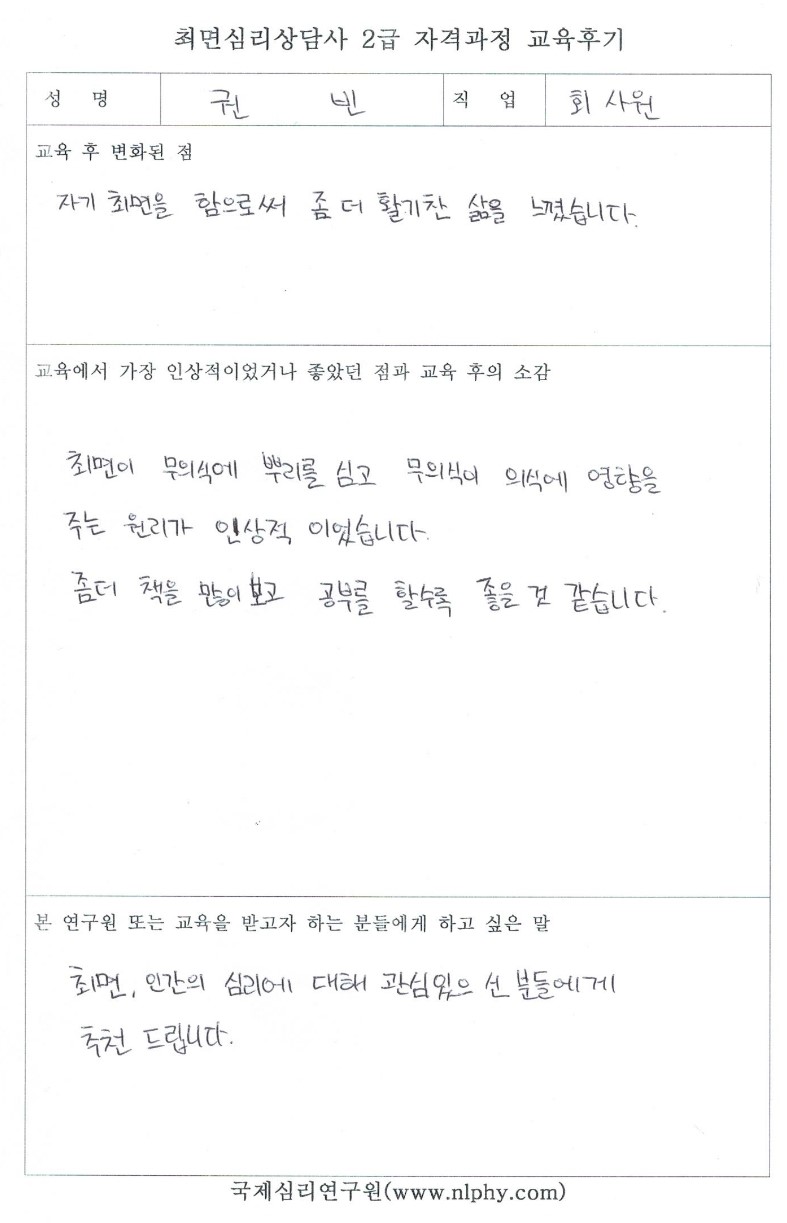 최면심리상담사 2급 자격과정 교육후기
성 명 권 빈 직 업 회사원
교육 후 변화된 점
자기 최면을 함으로써 좀 더 활기찬 삶을 느꼈습니다.
교육에서 가장 인상적이었거나 좋았던 점과 교육 후의 소감
최면이 무의식에 뿌리를 심고 무의식이 의식에 영향을
주는 원리가 인상적 이었습니다.
좀더 책을 많이 보고 공부를 할수록 좋을 것 같습니다.
본 연구원 또는 교육을 받고자 하는 분들에게 하고 싶은 말
최면, 인간의 심리에 대해 관심있으 신 분들에게
추천 드립니다.
국제심리연구원(www.nlphy.com)